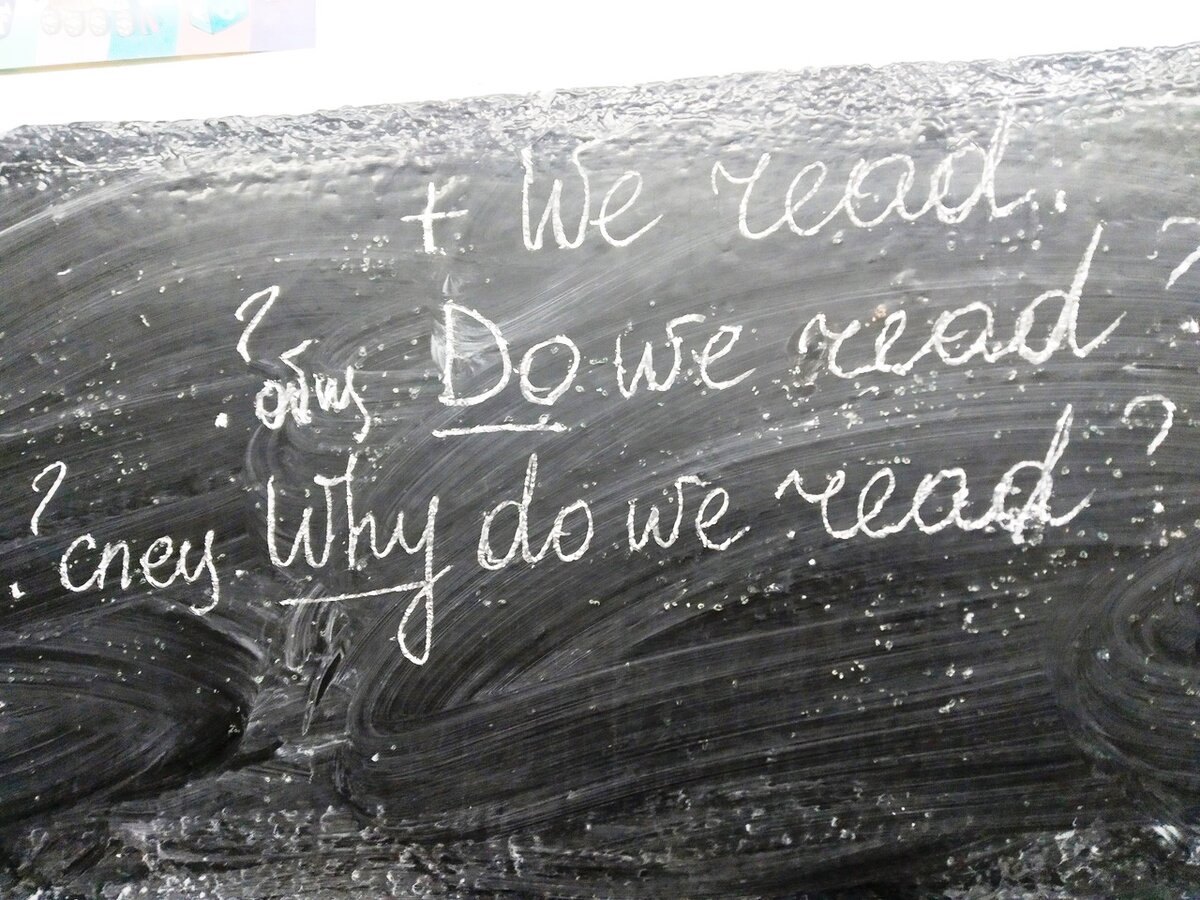 + We read.
? общ Do we read?
? спец. Why do we read?